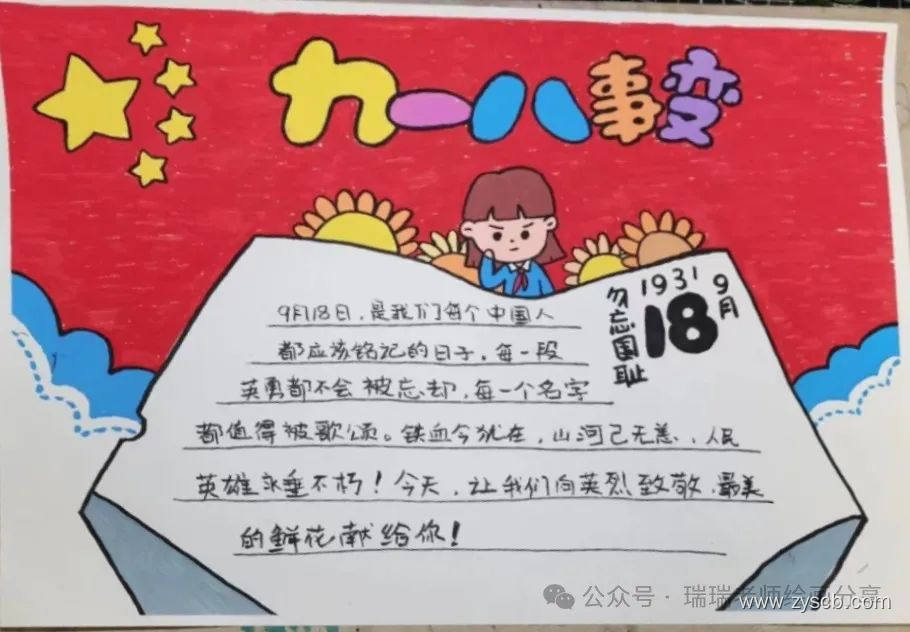 九一八事变
1931 9月
18
勿忘国耻
9月18日，是我们每个中国人
都应该铭记的日子，每一段
英勇都不会被忘却，每一个名字
都值得被歌颂。铁血今犹在，山河已无恙，人民
英雄永垂不朽！今天，让我们向英烈致敬，最美
的鲜花献给你！
公众号·瑞瑞老师绘画分享
www.zyscb.com